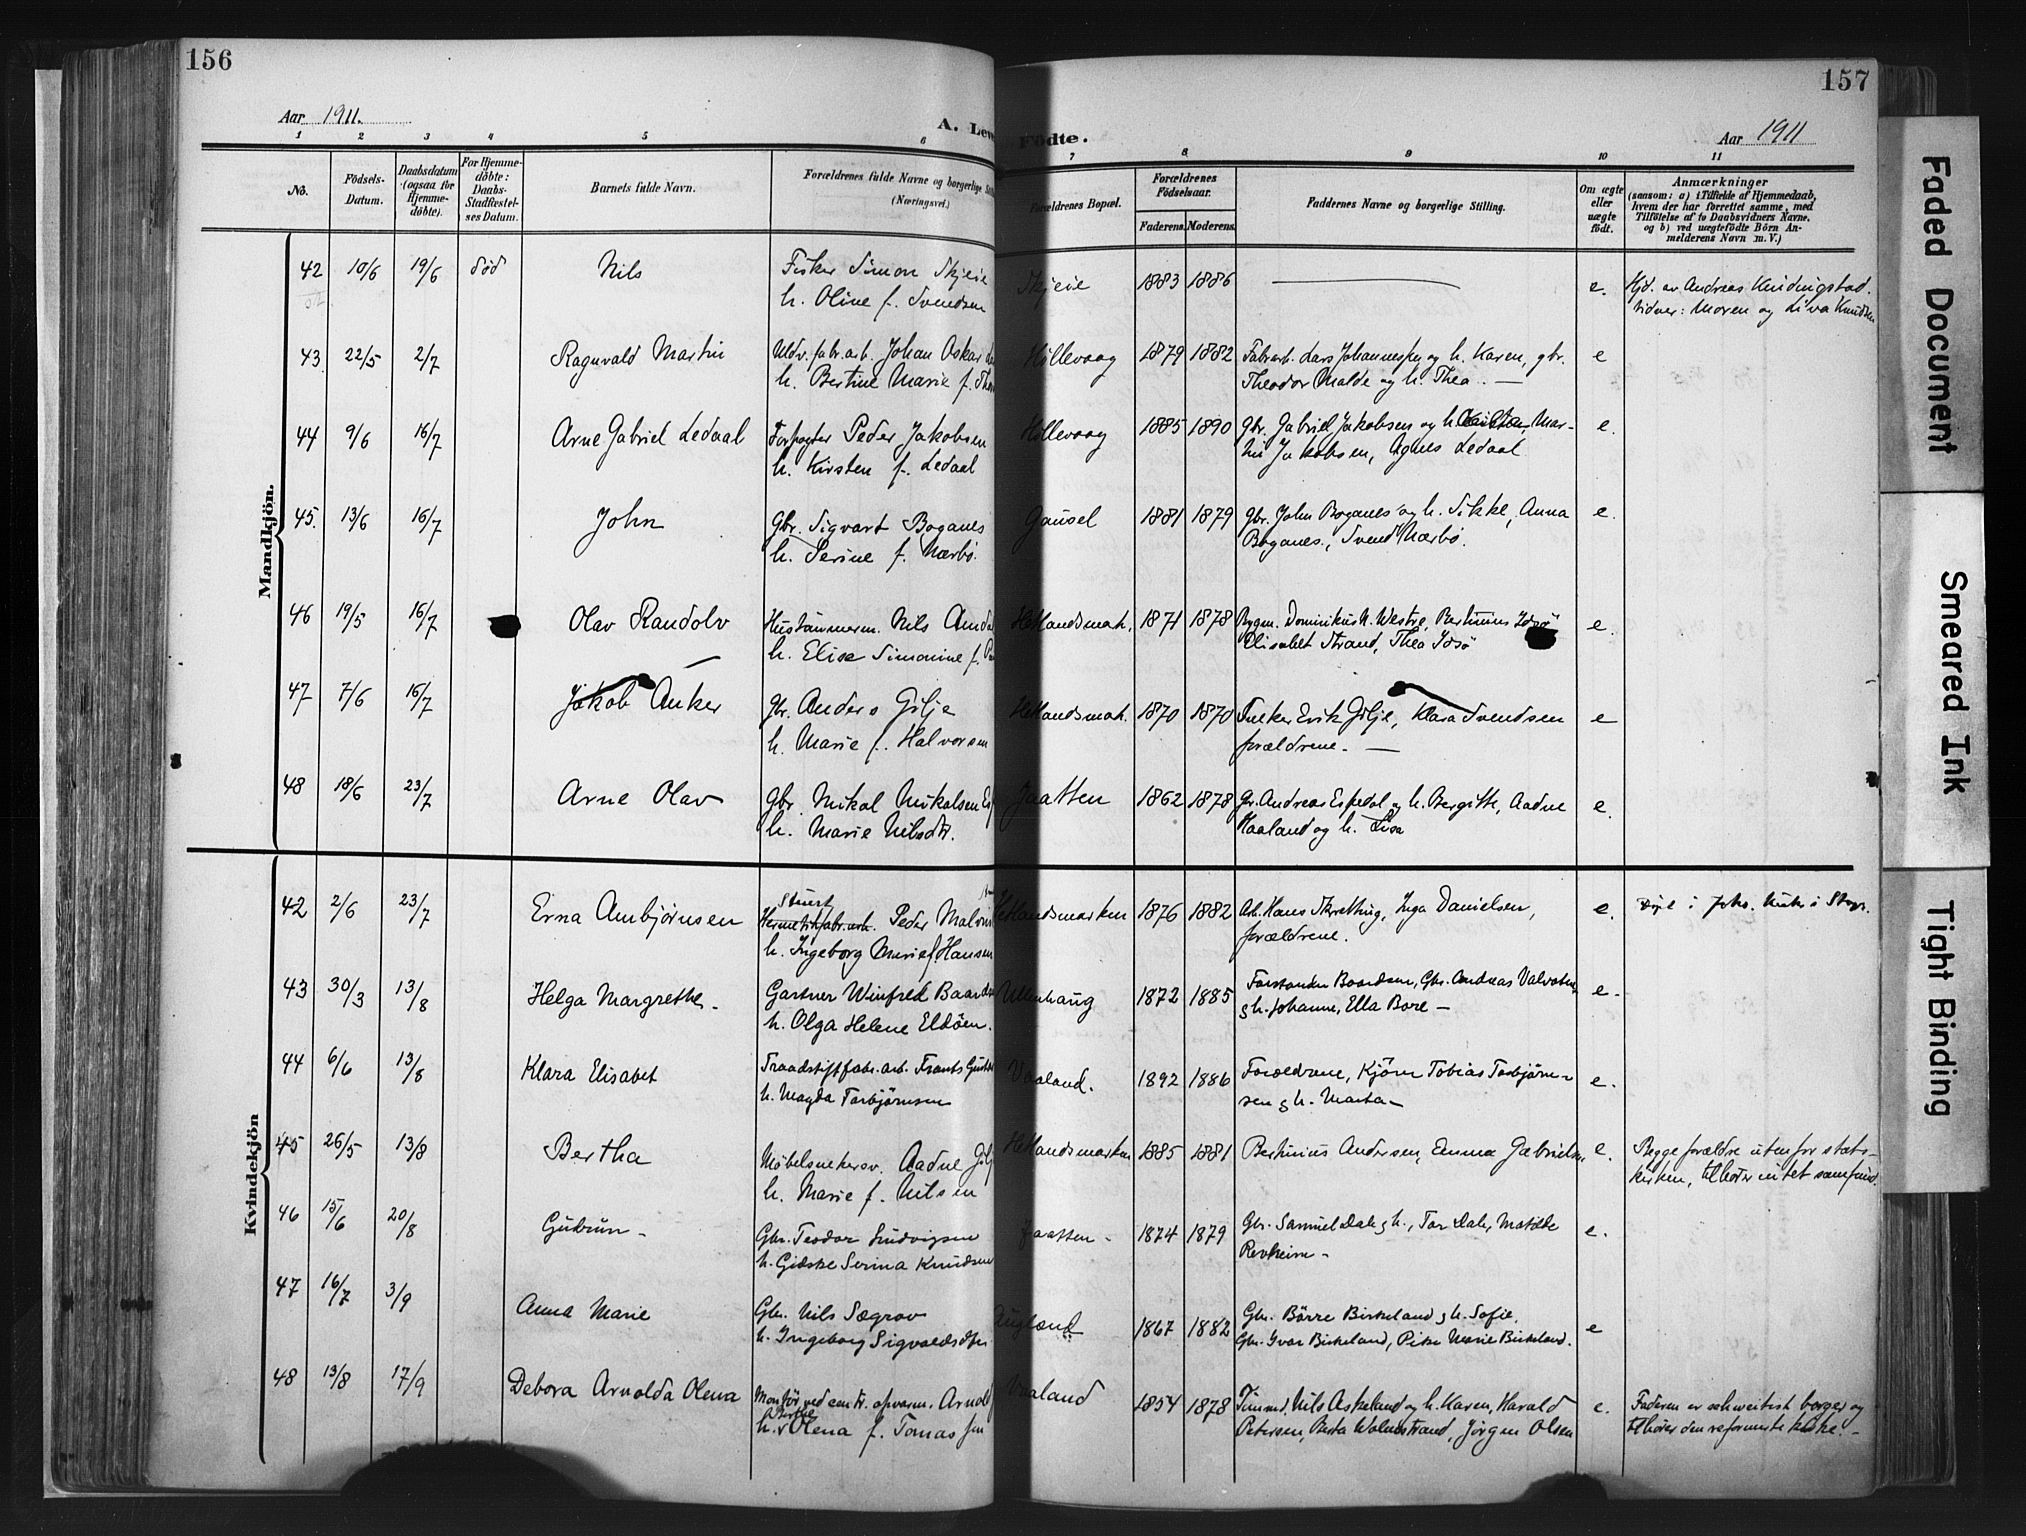 156
157
Aar 1911.
A. Leve
Födte.
Aar 1911
1 2 3 4 5 6 7 8 9 10 11
No.
Födsels-
Datum.
Daabsdatum
(ogsaa for
Hjemme-
döbte).
For Hjemme-
döbte:
Daabs-
Stadfæstel-
ses Datum.
Barnets fulde Navn.
Forældrenes fulde Navne og borgerlige Stil
(Næringsvei.)
Forældrenes Bopæl.
Forældrenes
Födselsaar.
Faderens. Moderens.
Faddernes Navne og borgerlige Stilling.
Om ægte
eller
uægte
födt.
Anmærkninger
(saasom: a) i Tilfælde af Hjemmedaab,
hvem der har forrettet samme, med
Tilföielse af to Daabsvidners Navne,
og b) ved uægtefödte Börn An-
melderens Navn m. V.)
Mandkjön.
42 10/6 19/6 död Nils Fisker Simon Skjeie Skjeie 1883 1886 e. Hjd. av Andreas Knudingstad.
h. Oline f. Svendsen vidner: Moren og Liva Knudsen
43 22/5 2/7 Ragnvald Martin Uldv.fabr.arb. Johan Oskar Hillevaag 1879 1882 Fabrarb. Lars Johannesen og h. Karen, gbr. e
h. Bertine Marie f. Theodor Malde og h. Thea. —
44 9/6 16/7 Arne Gabriel Ledaal Forpagter Peder Jakobsen Hillevaag 1885 1890 Gbr. Gabriel Jakobsen og h. Mar- e.
h. Kirsten f. Ledaal tin Jakobsen, Agnes Ledaal
45. 13/6 16/7 John Gbr. Sigvart Boganes Gausel 1881 1879 Gbr. John Boganes og h. Sikke, Anna e.
h. Serine f. Nærbø. Boganes, Svend Nærbø.
46 19/5 16/7 Olav Randolv Hustømmerm. Nils Hetlandsmark. 1871 1878 Bygm. Dominikus N. Westre, Bertinius Idsø e.
h. Elise Simonine f. Elisabet Strand, Thea Idsø
47 7/6 16/7 Jakob Anker Gbr. Anders Gilje Hetlandsmark. 1870 1870 Snekker Erik Gilje, Klara Svendsen e
h. Marie f. Halvorsen forældrene. —
48 18/6 23/7 Arne Olav Gbr. Mikal Mikalsen Jaatten 1862 1878 Gbr. Andreas Espedal og h. Bergitte, Aadne e.
h. Marie Nilsdtr. Haaland og h. Lisa
Kvindekjön
42 2/6 23/7 Erna Ambjørnsen Stuert
Hermetikfabr.arb. Peder Hetlandsmarken 1876 1882 Arb. Hans Skretting, Inga Danielsen, e. Døpt i Johs. kirke i Stvgr.
h. Ingeborg Marie f. Hansen forældrene.
43 30/3 13/8 Helga Margrethe - Gartner Winfred Ullenhaug 1872 1885 Forstander Baardsen, Gbr. Andreas Valvatne e.
h. Olga Helene Eldöen. g h. Johanne, Ella Bore —
44 6/6 13/8 Klara Elisabet Traadstiftfabr.arb. Frants Vaaland. 1892 1886 Forældrene, Kjörn Tobias Torbjörn- e.
h. Magda Torbjörnsen sen g h. Marta —
45 26/5 13/8 Bertha Møbelsnekersv. Aadne Hetlandsmarken 1885 1881 Bertinius Andersen, Emma Gabrielsen e. Begge forældre utenfor stats-
h. Marie f. Nilsen kirken, tilhører intet samfund.
46 15/6 20/8 Gudrun - Gbr. Teodor Ludvigsen Jaatten - 1874 1879 Gbr. Samuel Dale g h., Tor Dale, Matilde e.
h. Gidske Serina Knudsen Revheim -
47 16/7 3/9 Anna Marie Gbr. Nils Sægrov Augland 1867 1882 Gbr. Börre Birkeland g h. Sofie, e
h. Ingeborg Sigvaldsdtr Gbr. Ivar Birkeland, Pike Marie Birkeland.
48 13/8 17/9 Debora Arnolda Olena Montör ved centr. opvarm. Arnold Vaaland 1854 1878 Tömmerm. Nils Askeland og h. Karen, Harald e. Faderen er schweitisk borger og
h. Birthe Olena f. Tomas Petersen, Berta Wolmestrand, Jörgen Olsen tilhører den reformerte kirke. -
Faded Document
Smeared Ink
Tight Binding